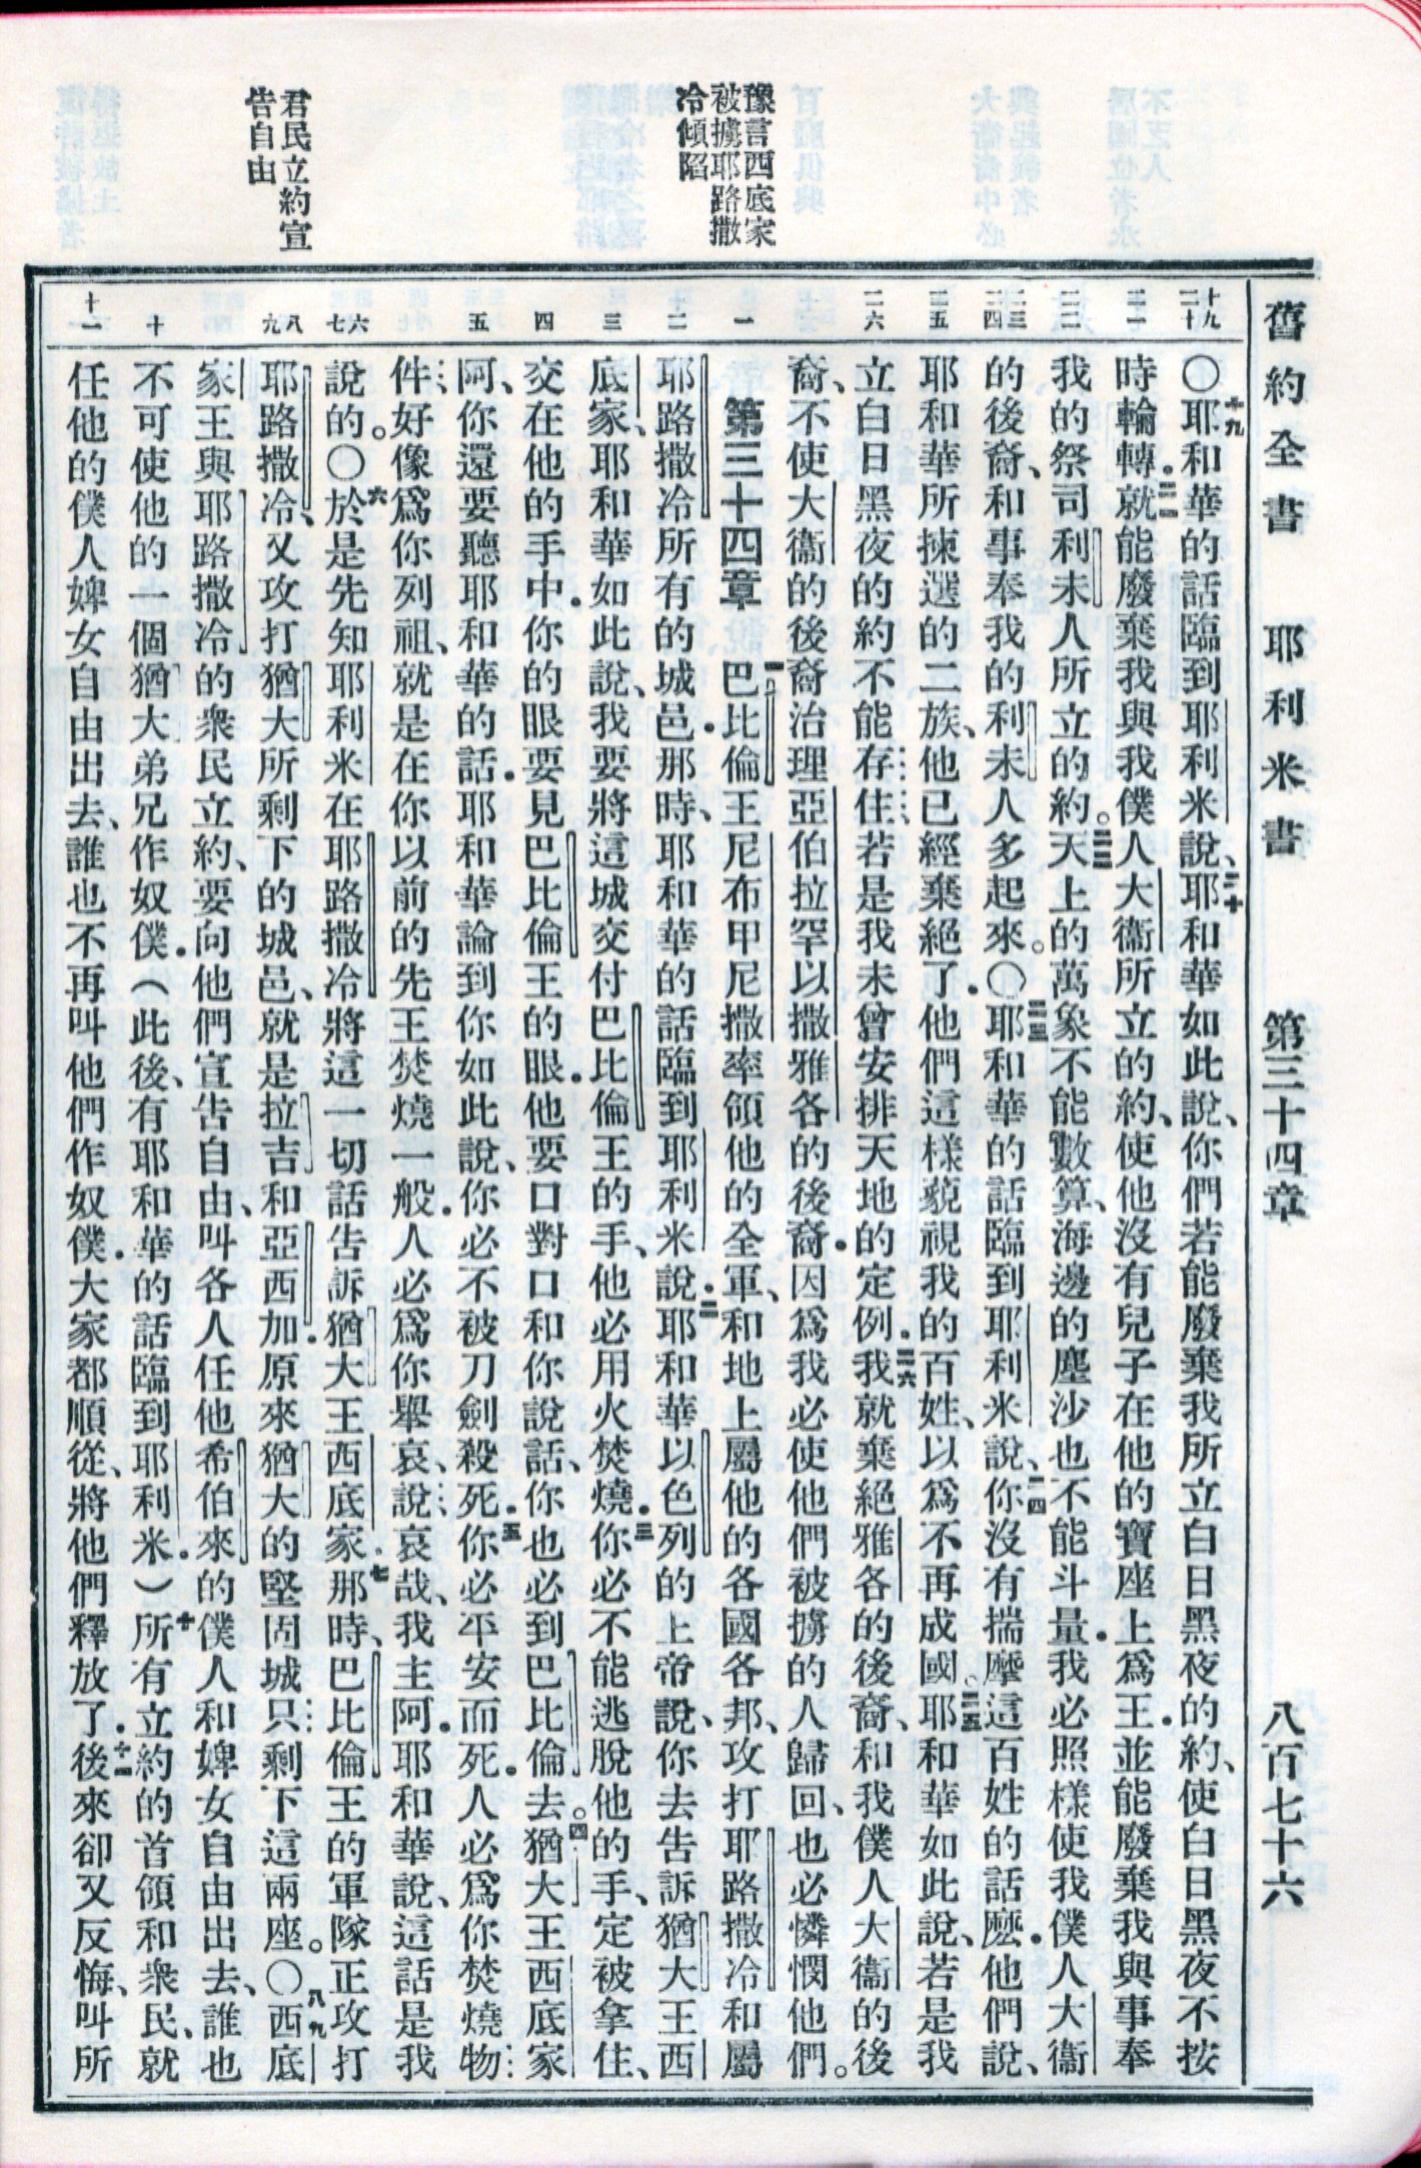 舊約全書 耶利米書 第三十四章 八百七十六
豫言西底家
被擄耶路撒
冷傾陷
君民立約宣
告自由
十九 二十
二一
二二
二三 二四
二五
二六
一
二
三
四
五
六 七
八 九
十
十一
〇十九耶和華的話臨到耶利米說、二十耶和華如此說、你們若能廢棄我所立白日黑夜的約、使白日黑夜不按
時輪轉.二一就能廢棄我與我僕人大衞所立的約、使他沒有兒子在他的寶座上爲王.並能廢棄我與事奉
我的祭司利未人所立的約。二二天上的萬象不能數算、海邊的塵沙也不能斗量.我必照樣使我僕人大衞
的後裔、和事奉我的利未人多起來。〇二三耶和華的話臨到耶利米說、二四你沒有揣摩這百姓的話麽.他們說、
耶和華所揀選的二族、他已經棄絕了.他們這樣藐視我的百姓、以爲不再成國。二五耶和華如此說、若是我
立白日黑夜的約不能存住若是我未曾安排天地的定例.二六我就棄絕雅各的後裔、和我僕人大衞的後
裔、不使大衞的後裔治理亞伯拉罕以撒雅各的後裔.因爲我必使他們被擄的人歸回、也必憐憫他們。
第三十四章 一巴比倫王尼布甲尼撒率領他的全軍、和地上屬他的各國各邦、攻打耶路撒冷和屬
耶路撒冷所有的城邑.那時、耶和華的話臨到耶利米說.二耶和華以色列的上帝說、你去告訴猶大王西
底家、耶和華如此說、我要將這城交付巴比倫王的手、他必用火焚燒.三你必不能逃脫他的手、定被拿住、
交在他的手中.你的眼要見巴比倫王的眼.他要口對口和你說話、你也必到巴比倫去。四猶大王西底家
阿、你還要聽耶和華的話.耶和華論到你如此說、你必不被刀劍殺死.五你必平安而死.人必爲你焚燒物
件、好像爲你列祖、就是在你以前的先王焚燒一般.人必爲你舉哀、說哀哉、我主阿.耶和華說、這話是我
說的。〇六於是先知耶利米在耶路撒冷將這一切話告訴猶大王西底家七那時、巴比倫王的軍隊正攻打
耶路撒冷、又攻打猶大所剩下的城邑、就是拉吉和亞西加.原來猶大的堅固城只剩下這兩座。〇八九西底
家王與耶路撒冷的衆民立約、要向他們宣告自由、叫各人任他希伯來的僕人和婢女自由出去、誰也
不可使他的一個猶大弟兄作奴僕.（此後、有耶和華的話臨到耶利米.）十所有立約的首領和衆民、就
任他的僕人婢女自由出去、誰也不再叫他們作奴僕.大家都順從、將他們釋放了.十一後來卻又反悔、叫所